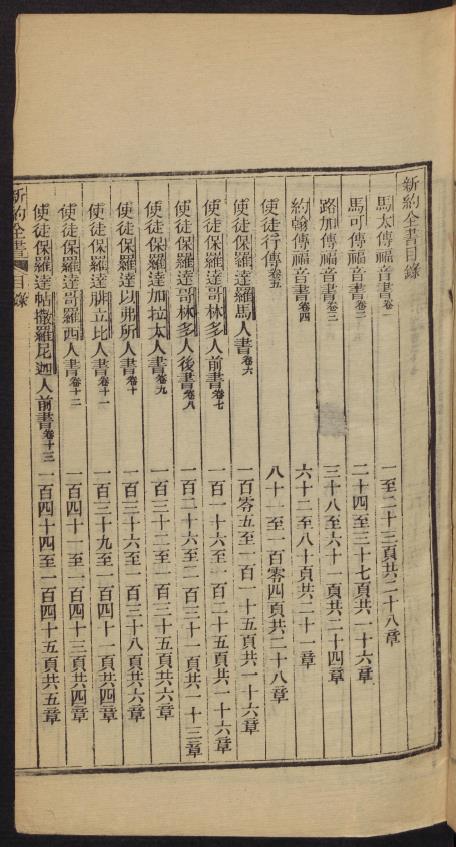 新約全書目錄
馬太傳福音書卷一 一至二十三頁共二十八章
馬可傳福音書卷二 二十四至三十七頁共一十六章
路加傳福音書卷三 三十八至六十一頁共二十四章
約翰傳福音書卷四 六十二至八十頁共二十一章
使徒行傳卷五 八十一至一百零四頁共二十八章
使徒保羅達羅馬人書卷六 一百零五至一百一十五頁共一十六章
使徒保羅達哥林多人前書卷七 一百一十六至一百二十五頁共一十六章
使徒保羅達哥林多人後書卷八 一百二十六至一百三十一頁共一十三章
使徒保羅達加拉太人書卷九 一百三十二至一百三十五頁共六章
使徒保羅達以弗所人書卷十 一百三十六至一百三十八頁共六章
使徒保羅達腓立比人書卷十一 一百三十九至一百四十一頁共四章
使徒保羅達哥羅西人書卷十二 一百四十一至一百四十三頁共四章
使徒保羅達帖撒羅尼迦人前書卷十三 一百四十四至一百四十五頁共五章
新約全書 目錄